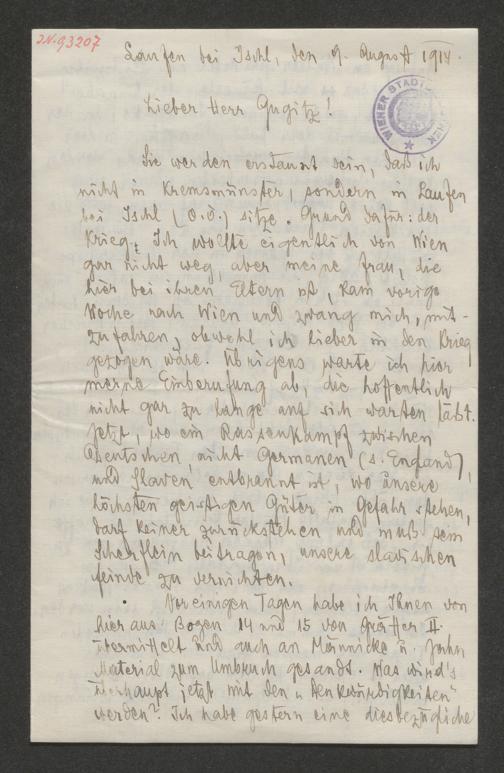 J.N. 93207
Laufen bei Ischl, den 9. August 1914.
WIENER STADT
Lieber Herr Gugitz!
Sie werden erstaunt sein, daß ich
nicht in Kremsmünster, sondern in Laufen
bei Ischl (O.Ö.) sitze. Grund dafür: der
Krieg. Ich wollte eigentlich von Wien
gar nicht weg, aber meine Frau, die
hier bei ihren Eltern ist, kam vorige
Woche nach Wien und zwang mich, mit-
zufahren, obwohl ich lieber in den Krieg
gezogen wäre. Übrigens warte ich hier
meine Einberufung ab, die hoffentlich
nicht gar zu lange auf sich warten läßt.
Jetzt, wo ein Rassenkampf zwischen
Deutschen, nicht Germanen (s. England),
und Slaven entbrannt ist, wo unsere
höchsten geistigen Güter in Gefahr stehen,
darf keiner zurückstehen und muß sein
Scherflein beitragen, unsere slavischen
Feinde zu vernichten.
Vor einigen Tagen habe ich Ihnen von
hier aus Bogen 14 und 15 von Gräffer II.
übermittelt und auch an Männicke u. Jahn
Material zum Umbruch gesandt. Was wird's
überhaupt jetzt mit den „Denkwürdigkeiten"
werden? Ich habe gestern eine diesbezügliche